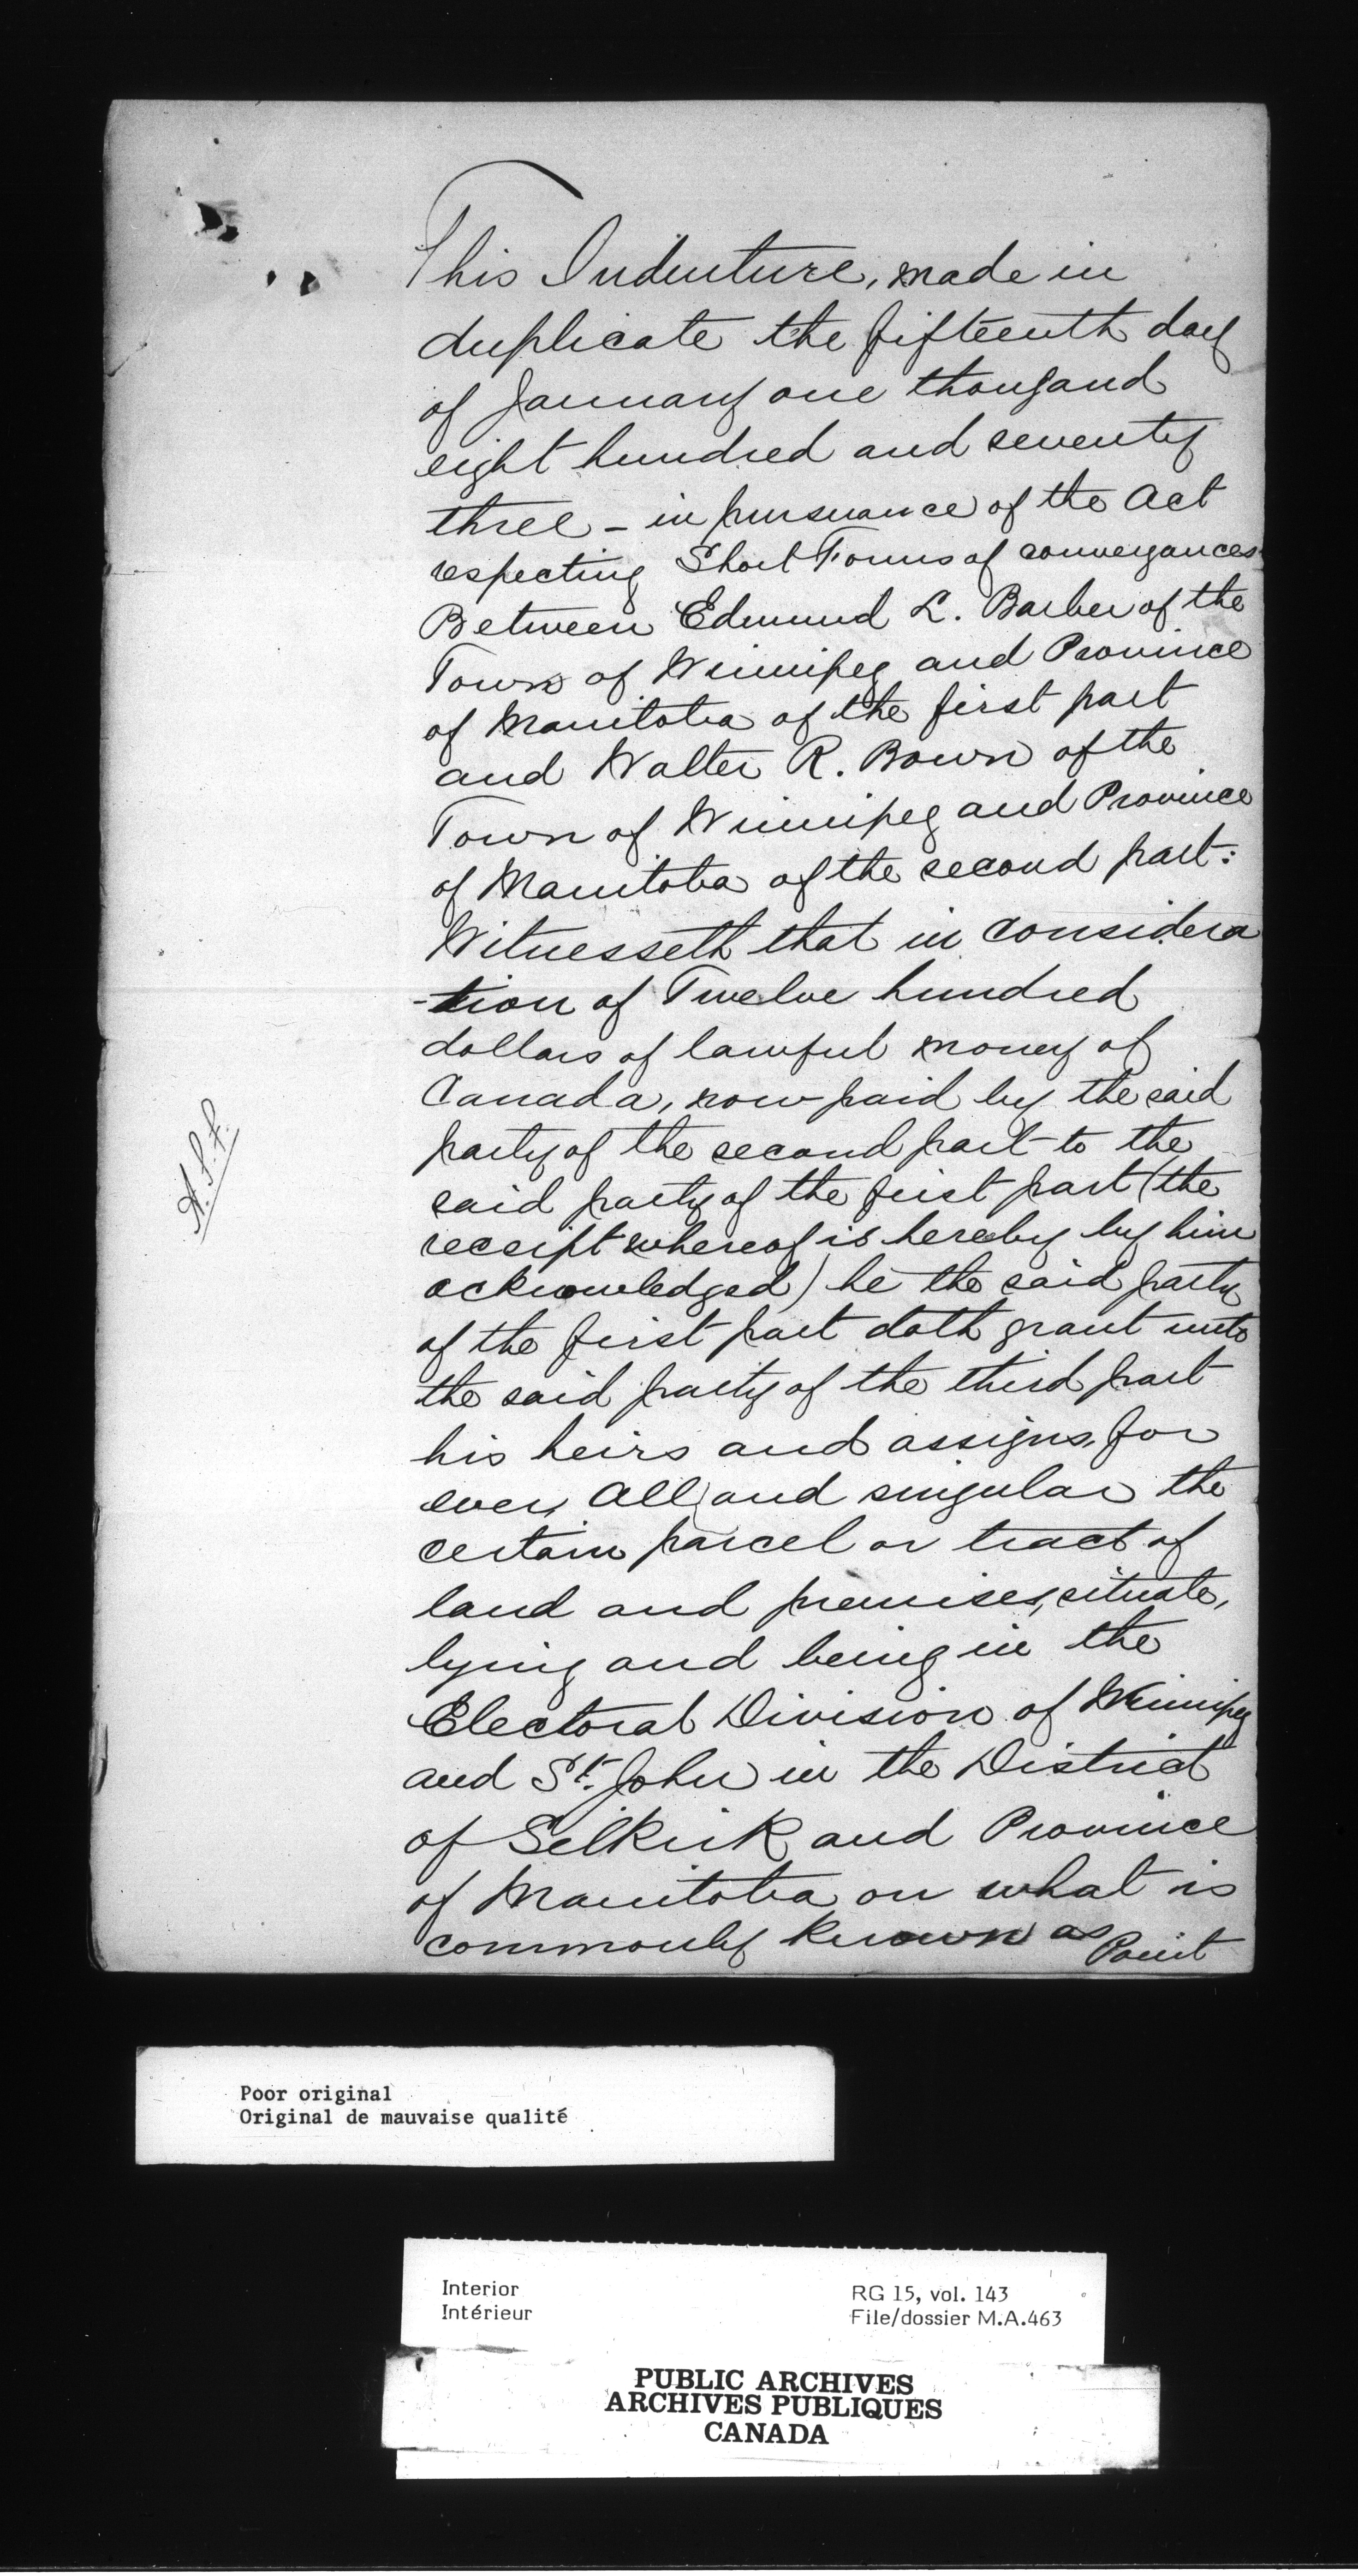 This Indenture, made in
duplicate the fifteenth day
of January one thousand
eight hundred and seventy
three - in pursuance of the Act
respecting Short Forms of conveyances
Between Edmund L. Barber of the
Town of Winnipeg and Province
of Manitoba of the first part
and Walter R. Bown of the
Town of Winnipeg and Province
of Manitoba of the second part:
Witnesseth that in considera
-tion of Twelve hundred
dollars of lawful money of
Canada, now paid by the said
party of the second part to the
said party of the first part (the
receipt whereof is hereby by him
acknowledged) he the said party
of the first part doth grant unto
the said party of the third part
his heirs and assigns, for
ever, All and singular the
certain parcel or tract of
land and premises, situate,
lying and being in the
Electoral Division of Winnipeg
and St. John in the District
of Selkirk and Province
of Manitoba on what is
commonly known as Point
Poor original
Original de mauvaise qualité
Interior
Intérieur
RG 15, vol. 143
File/dossier M.A.463
PUBLIC ARCHIVES
ARCHIVES PUBLIQUES
CANADA